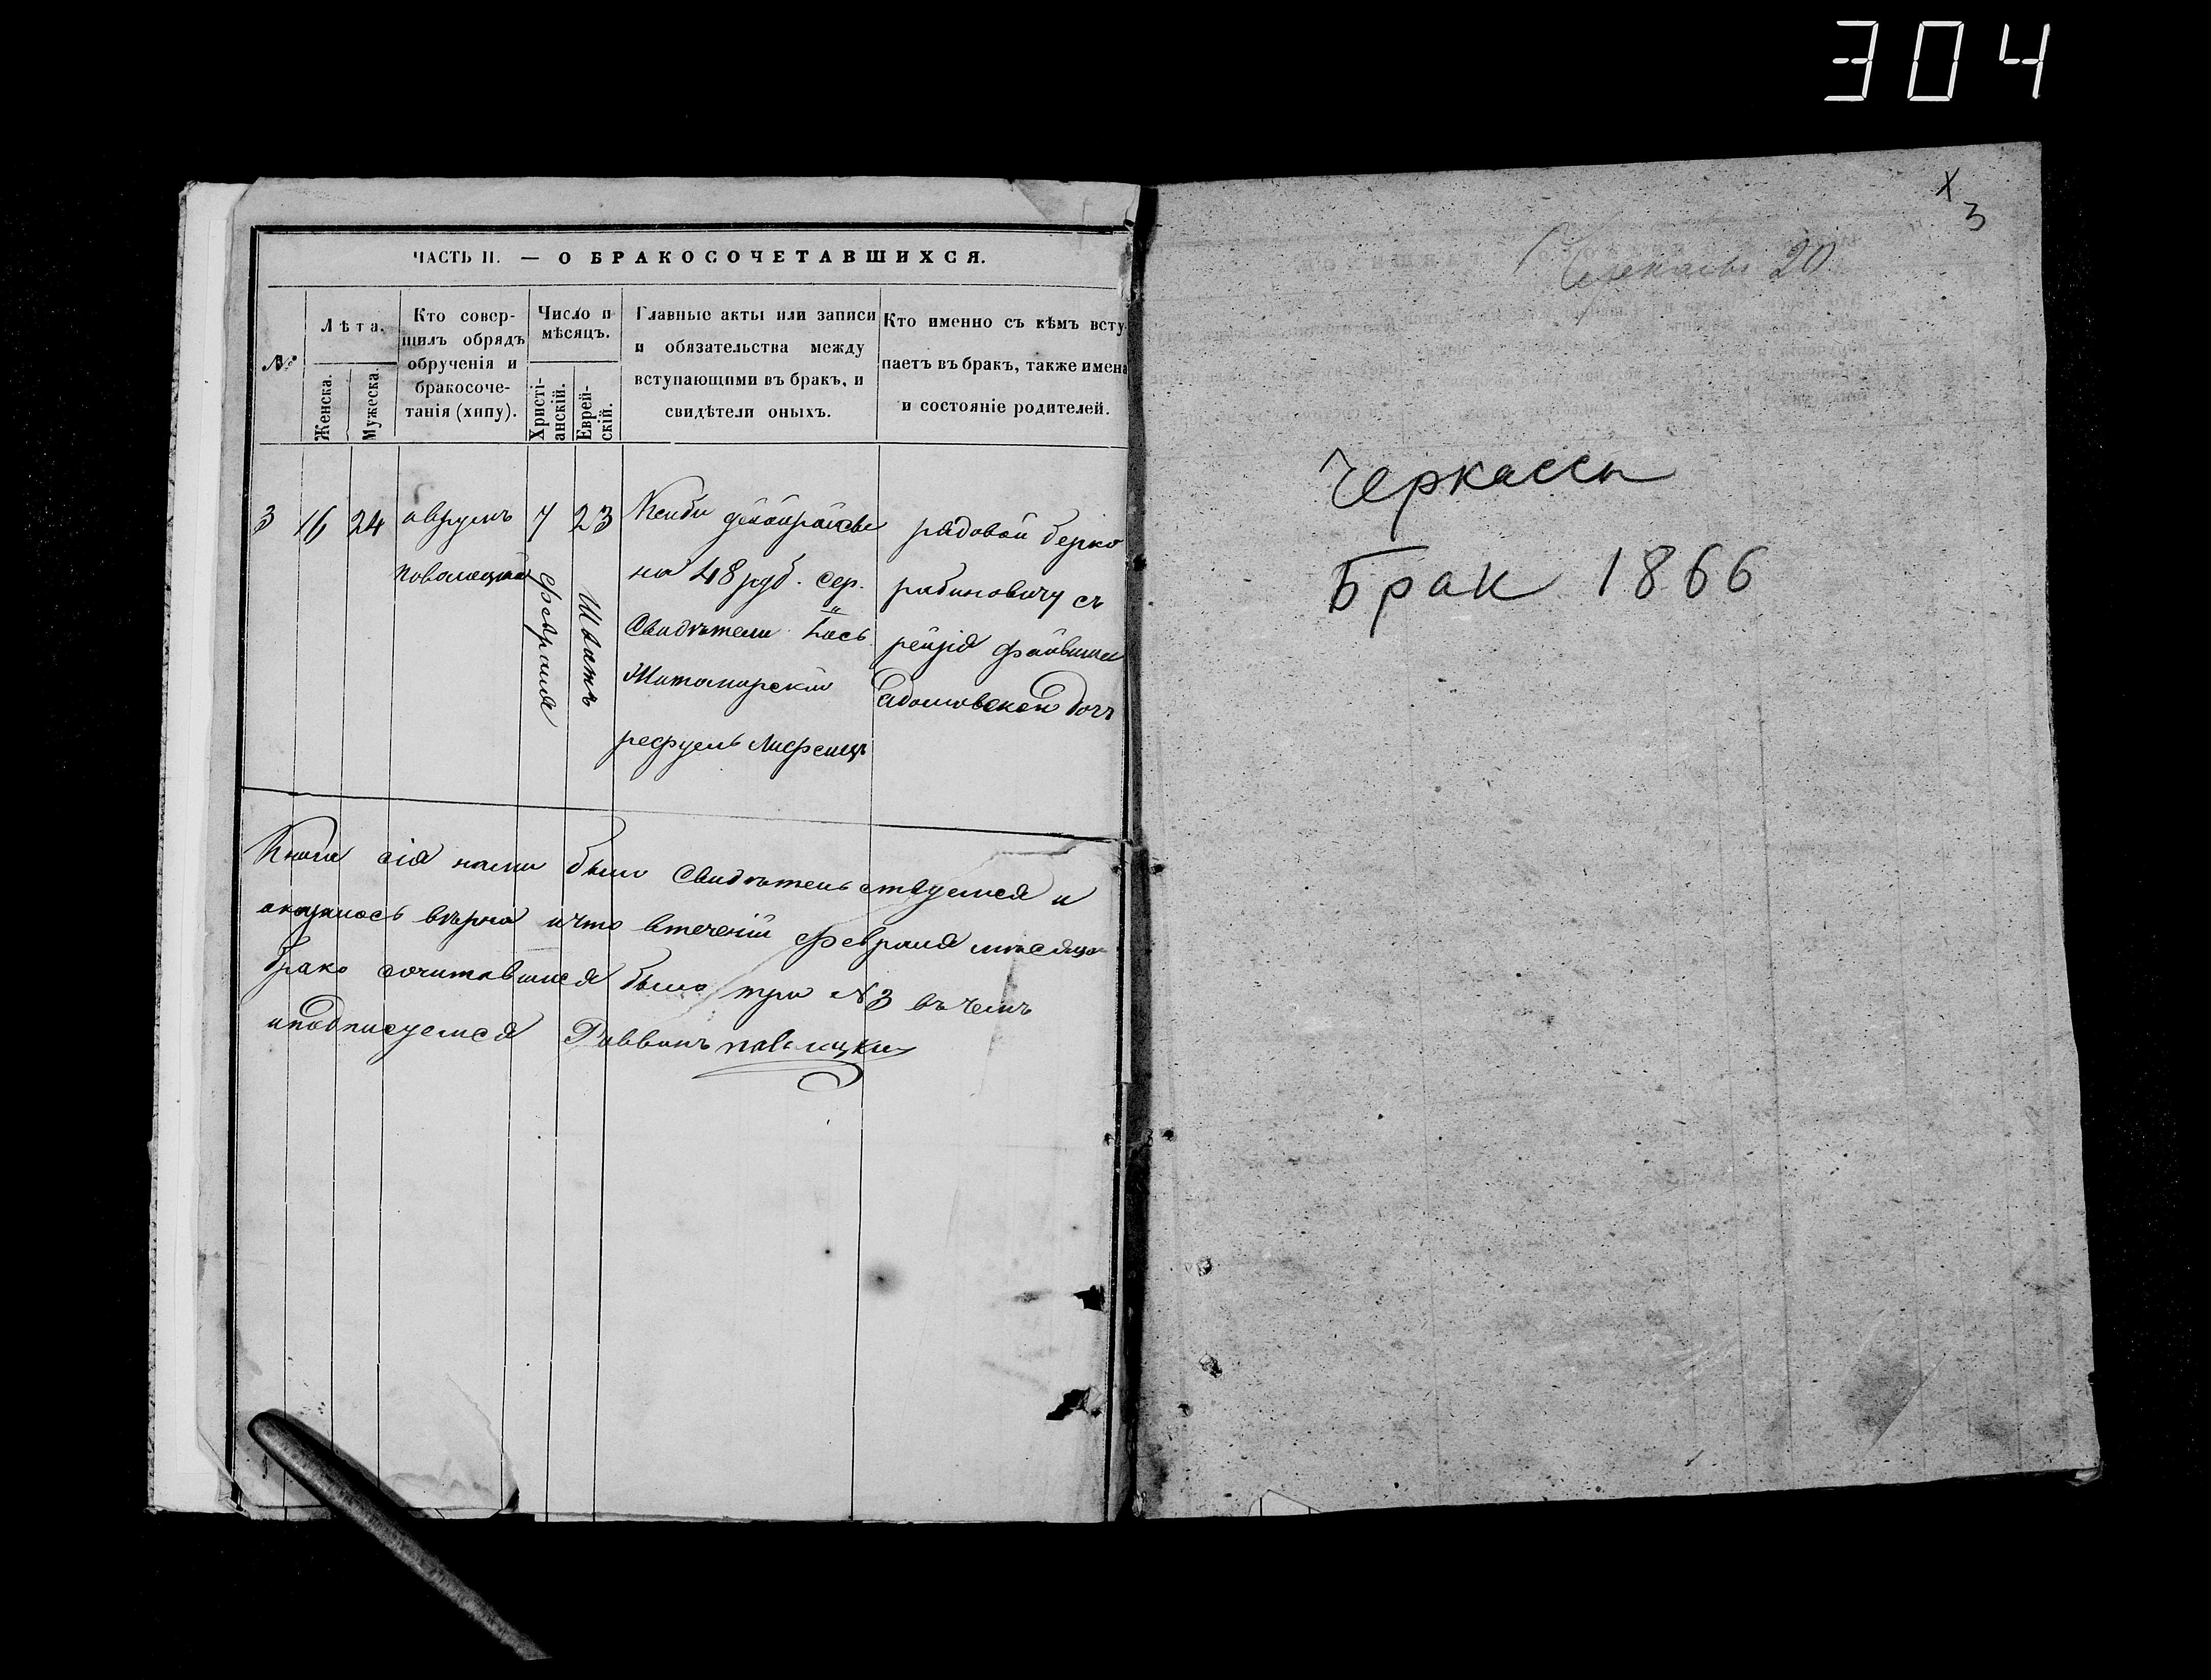 304
ЧАСТЬ II. — О БРАКОСОЧЕТАВШИХСЯ.
№
Лѣта.
Женска.
Мужеска.
Кто совер-
шилъ обрядъ
обрученія и
бракосоче-
танія (хипу).
Число и
мѣсяцъ.
Христі-
анскій.
Еврей-
скій.
Главные акты или записи
и обязательства между
вступающими въ бракъ, и
свидѣтели оныхъ.
Кто именно съ кѣмъ всту-
паетъ въ бракъ, также имена
и состояніе родителей.
3
16
24
аврумъ
7
Февраля
23
Шватъ
на 48 руб. сер.
Свидѣтели
Житомирскій
рядовой берко
рабиновичу съ
Книга сія нами было Свидѣтельствуемся и
оказалось вѣрна ичто втеченіи Февраля мѣсяца
брако сочитавшися было три №3 въ чемъ
иподписуемся Раввинъ
X
3
Черкассы 20
Черкассы
Брак 1866